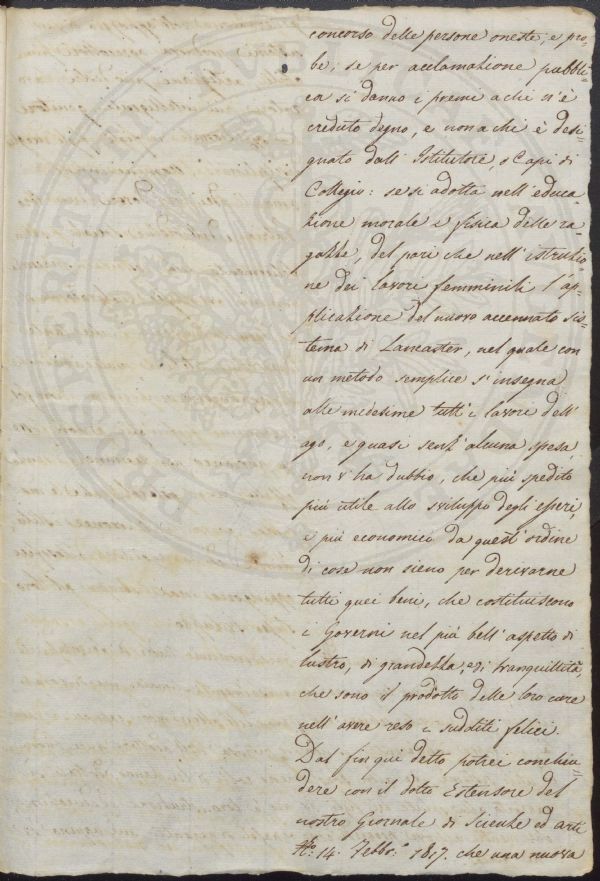 concorso delle persone oneste, e pro-
be; se per acclamazione pubbli-
ca si danno i premi a chi n'è
creduto degno, e non a chi è desi-
gnato dall' Istitutore, o Capi di
Collegio: se si adotta nell' educa-
zione morale e fisica delle ra-
gazze, del pari che nell' istruzio-
ne dei lavori femminili l'ap-
plicazione del nuovo accennato sis-
tema di Lancaster, nel quale con
un metodo semplice s'insegna
alle medesime tutt' i lavori dell'
ago, e quasi senz' alcuna spesa,
non v'ha dubbio, che più spedito
più utile allo sviluppo degli esseri,
e più economico da quest' ordine
di cose non sieno per derivarne
tutti quei beni, che costituiscono
i Governi nel più bell' aspetto di
lustro, di grandezza, e di tranquillità,
che sono il prodotto delle loro cure
nell' avere reso i sudditi felici.
Dal fin qui detto potrei conchiu-
dere con il dotto Estensore del
nostro Giornale di Scienze ed arti
No: 14. Febbr.o 1817. che una nuova
PROSPERITATI PUBLICAE